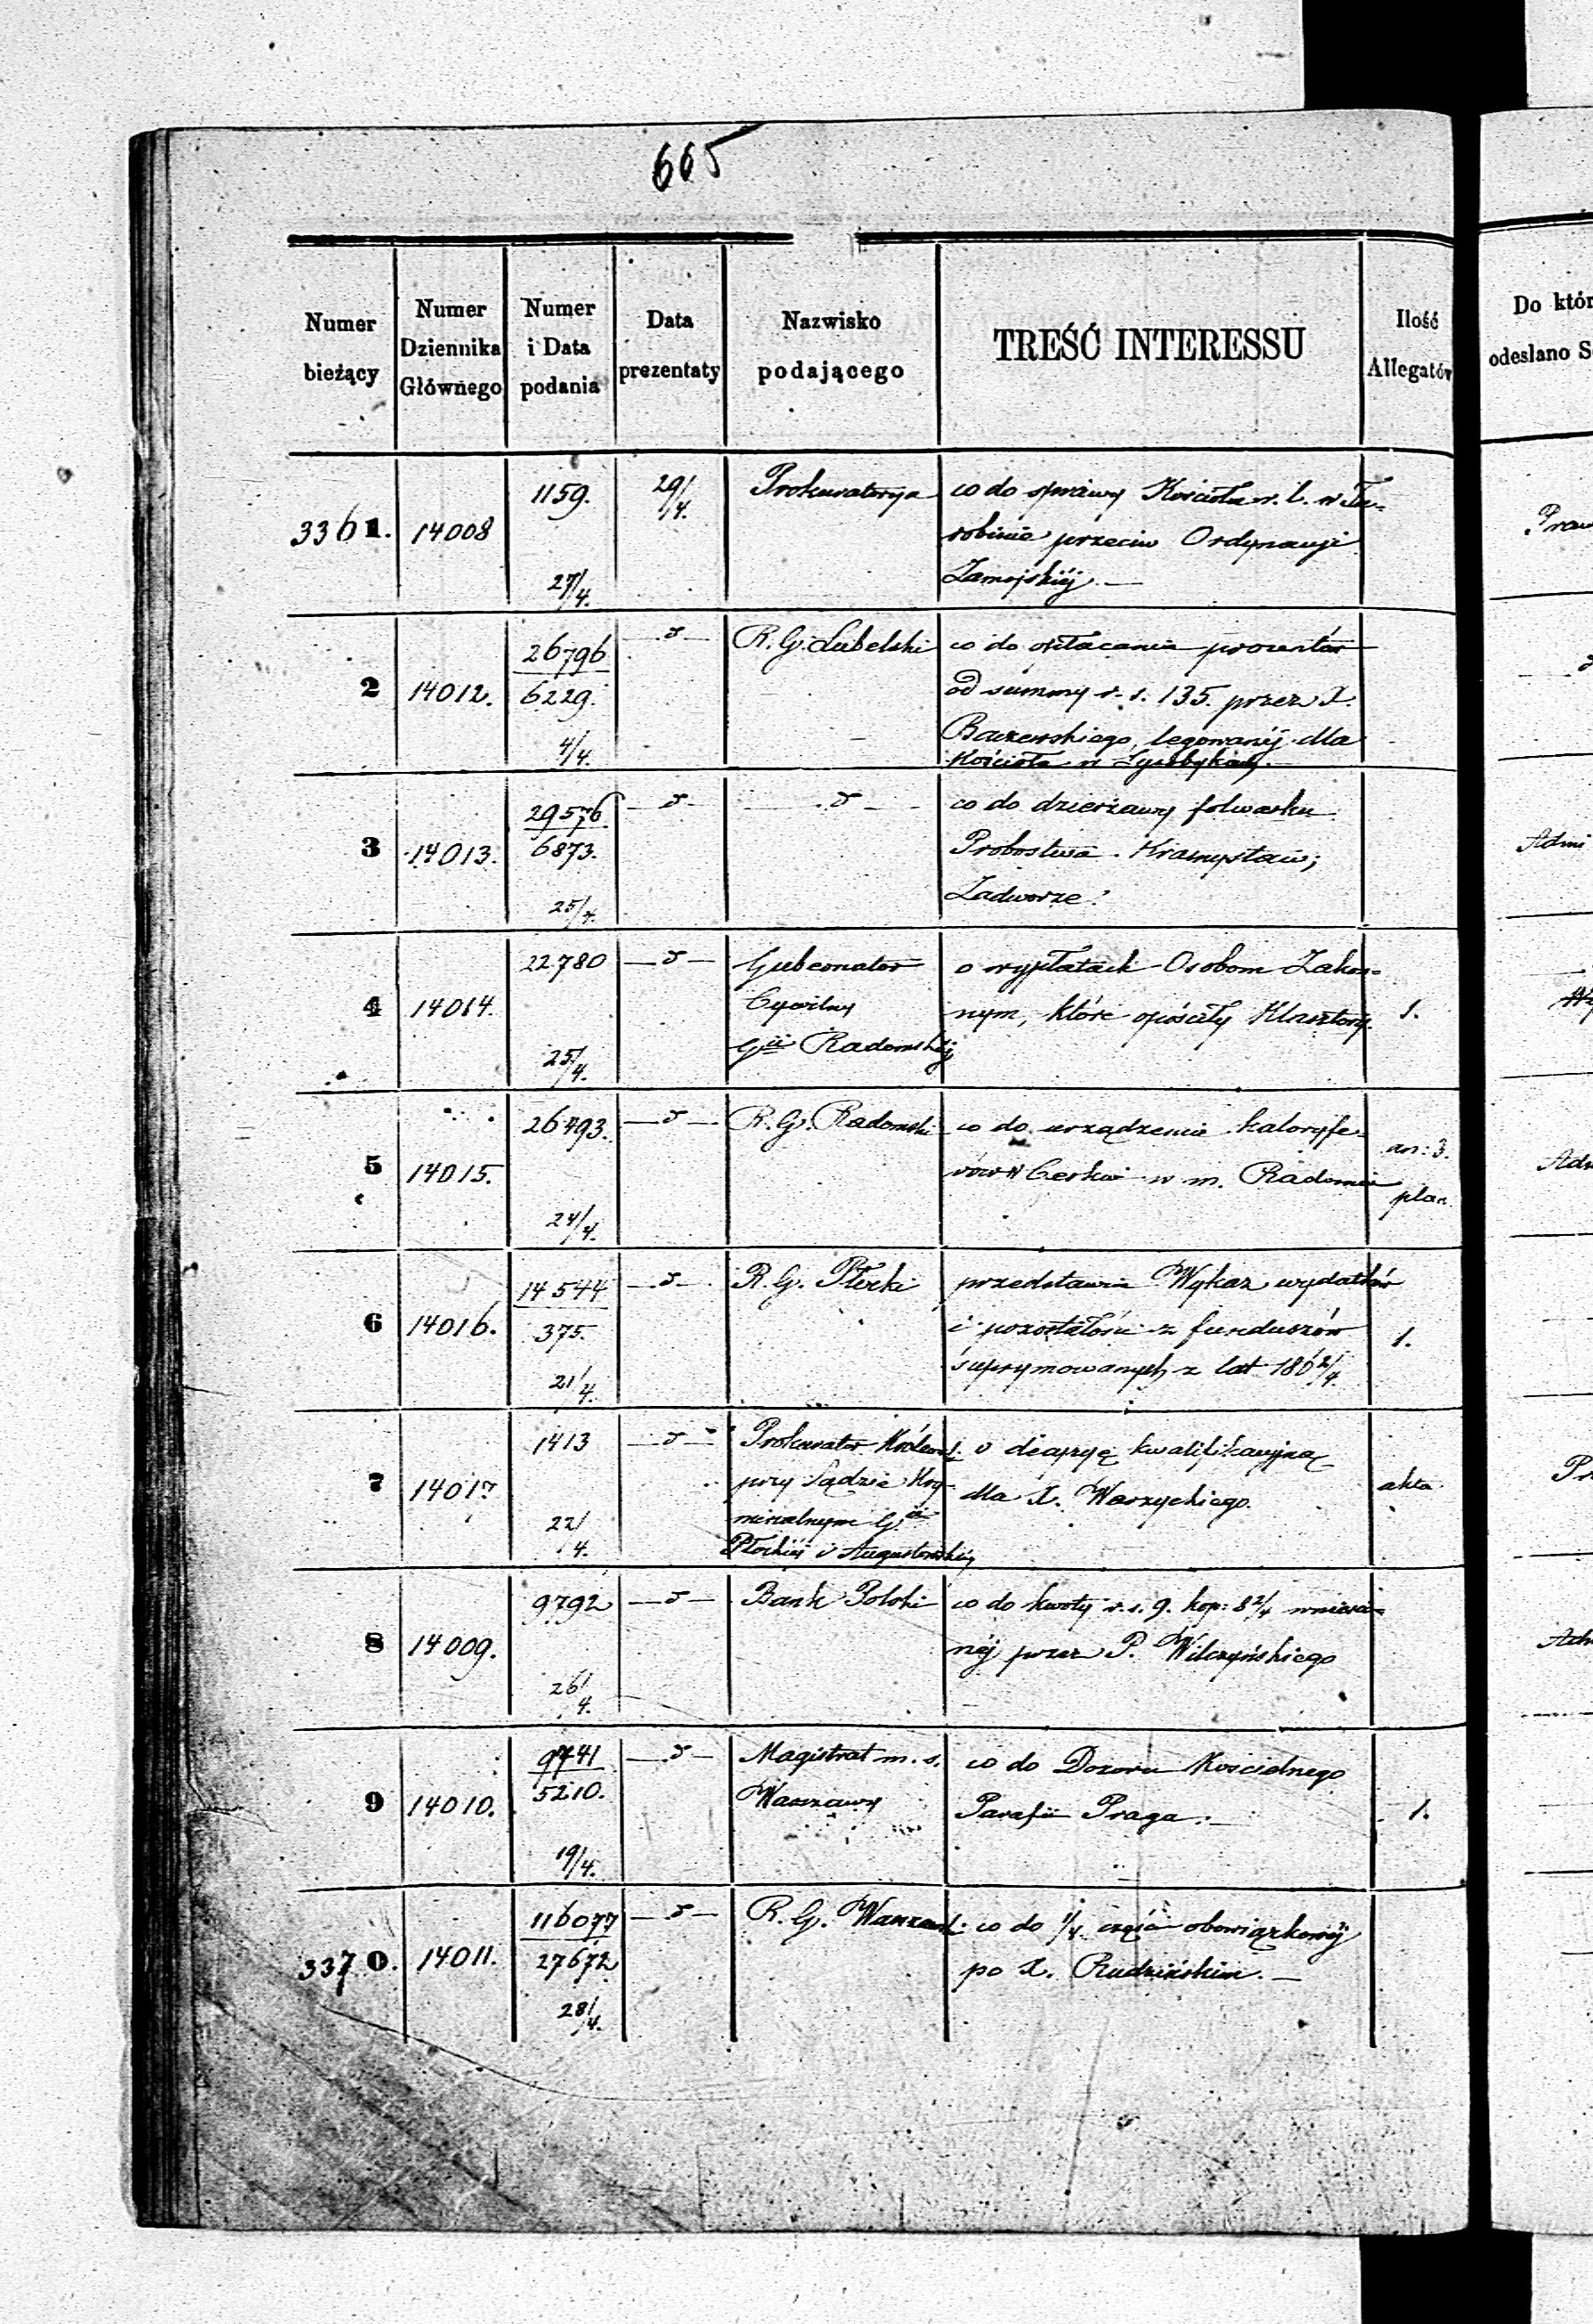 665
Numer bieżący
Numer Dziennika Głównego
Numer i Data podania
Data prezentaty
Nazwisko podającego
TREŚĆ INTERESSU
Ilość Allegatów
Do któr
odesłano S
3361. 14008 1159. 27/4. 29/4. Prokuratorya
co do sprawy Kościoła r. l. w Tu-
robinie przeciw Ordynacyi
Zamojskiéj. —
Praw
2 14012. 26796 6229. 4/4. —d— R. G. Lubelski
co do opłacania procentów
od summy r. s. 135. przez X.
legowanéj dla
Kościoła w
3 14013. 29576 6873. 25/4. —d— —d—
co do dzierżawy folwarku
Probostwa Krasnystaw,
Zadworze.
Admi
4 14014. 22780 25/4. —d— Gubernator
Cywilny
Gii Radomskiéj
o wypłatach Osobom Zakon-
nym, które opóściły Klasztory.
1.
5 14015. 26493. 24/4. —d— R. G. Radomski
co do urządzenia kaloryfe-
rów w Cerkwi w m. Radomiu
an: 3.
plan.
6 14016. 14544 375. 21/4. —d— R. G. Płocki
przedstawia Wykaz wydatków
i pozostałości z funduszów
suprymowanych z lat 186 2/4.
1.
7 14017 1413 22/4. —d— Prokurator Królews.
przy Sądzie Kry-
minalnym Gii
Płockiéj i Augustowskiéj
o decyzyę kwalifikacyjną
dla X. Warzychiego.
akta.
Pr
8 14009. 9792 26/4. —d— Bank Polski
co do kwoty r. s. 9. kop: 8 2/4 wniesio-
néj przez P. Wilczyńskiego
9 14010. 9741 5210. 19/4. —d— Magistrat m. s.
Warszawy
co do Dozoru Kościelnego
Parafii Praga.
1.
3370. 14011. 116077 27672 28/4. —d— R. G. Warszaws.
co do 1/4 części obowiązkowéj
po X. Rudzińskim. —